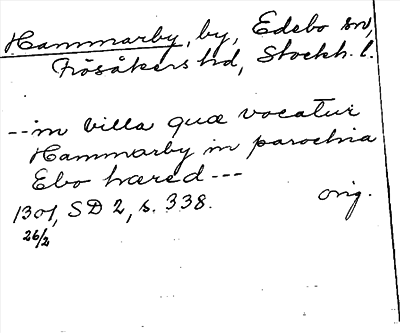 Hammarby, by, Edebo sn,
Frösåkers hd, Stockh. l.
--in villa quæ vocatur
Hammarby in parochia
Ebo hæred ---
1301, SD 2, s. 338. orig.
26/2